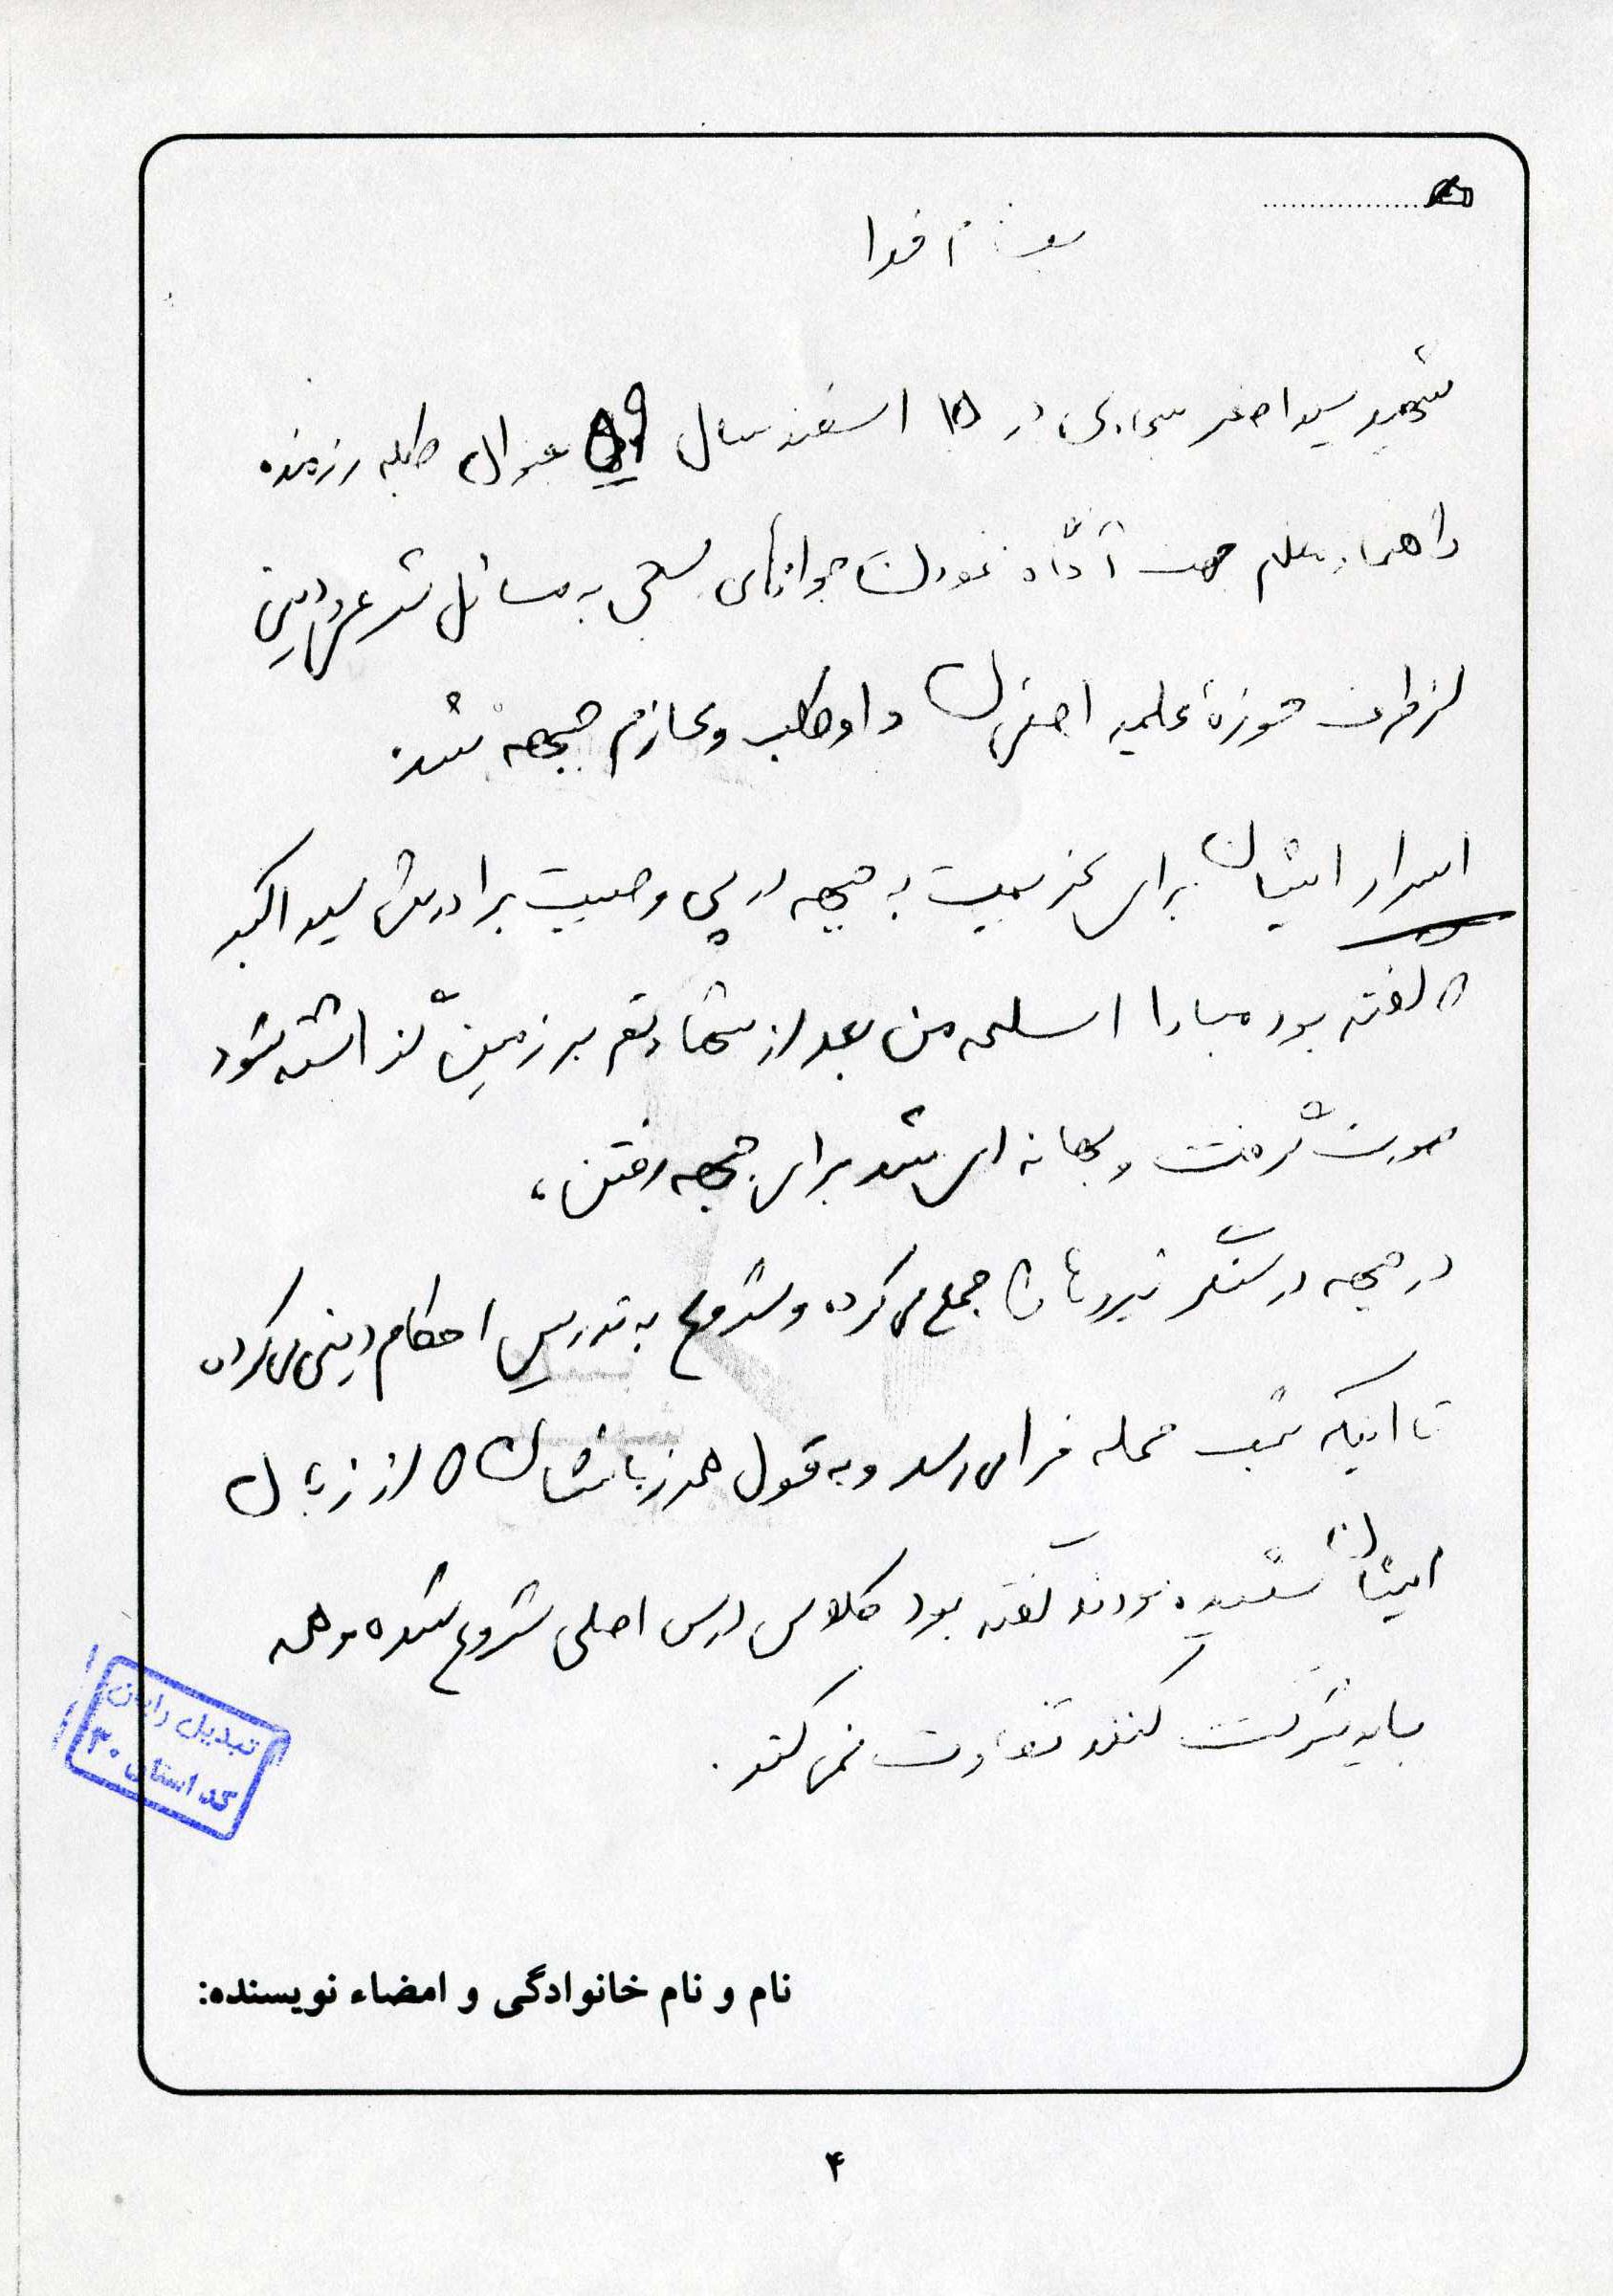 بنام خدا
شهید سید اصغر در ۱۵ اسفند سال ۵۹ بعنوان طلبه رزمنده
راهنما و معلم جهت آگاه نمودن جوانهای بسیجی به مسائل شرعی و دینی
از طرف حوزهٔ علمیه اصفهان داوطلب و عازم جبهه شد.
اسرار ایشان برای عزیمت به جبهه در پی وصیت برادرش سید اکبر
که گفته بود مبادا اسلحه من بعد از شهادتم بر زمین گذاشته شود
صورت گرفت و بهانه ای شد برای جبهه رفتن،
در جبهه در سنگر نیروها را جمع می کرده و شروع به تدریس احکام دینی می کرده
تا اینکه شب حمله فرا می رسد و به قول همرزمانشان که از زبان
ایشان شنیده بودند گفته بود کلاس درس اصلی شروع شده و همه
باید شرکت کنند تفاوت نمی کند.
تبدیل رایان
کد استان ۳۰
نام و نام خانوادگی و امضاء نویسنده:
۴